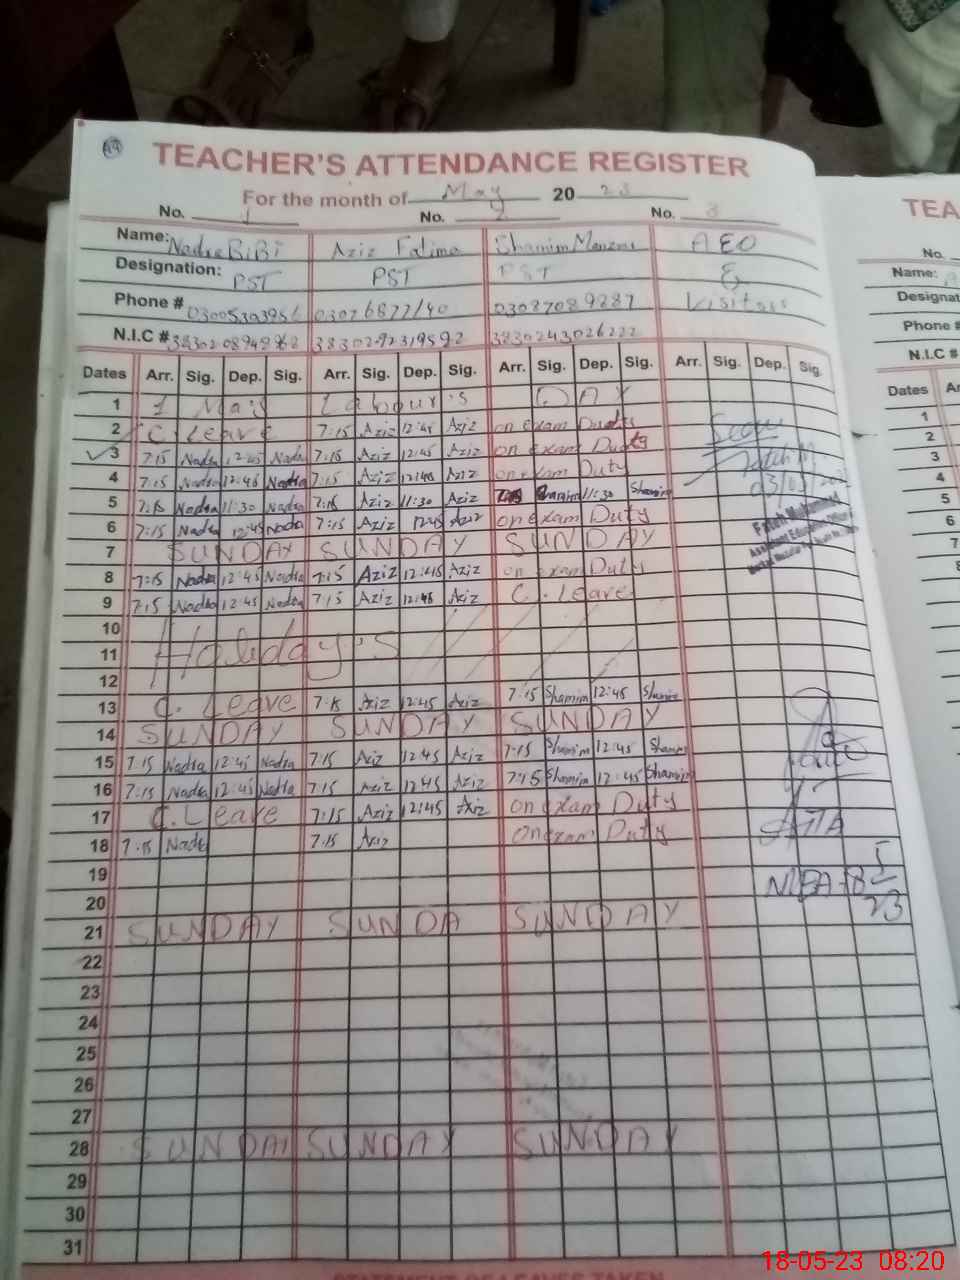 49
TEACHER'S ATTENDANCE REGISTER
For the month of May 2023
No. 1 No. 2 No. 3
Name: Nadia BiBi Aziz Fatima Shamim AEO
Designation: PST PST PST & Visitors
Phone # 03005303956 03076877140 03087089287
N.I.C # 3830208948968 3830292319592 3830243026222
Dates Arr. Sig. Dep. Sig. Arr. Sig. Dep. Sig. Arr. Sig. Dep. Sig. Arr. Sig. Dep. Sig.
1 1 May Labour's DAY
2 C. Leave 7:15 Aziz 12:45 Aziz on exam Duty
3 7:15 Nadia 12:45 Nadia 7:15 Aziz 12:45 Aziz on exam Duty
4 7:15 Nadia 12:45 Nadia 7:15 Aziz 12:45 Aziz on exam Duty
5 7:15 Nadia 11:30 Nadia 7:15 Aziz 11:30 Aziz Shamim 11:30 Shamim
6 7:15 Nadia 12:45 Nadia 7:15 Aziz 12:45 Aziz on exam Duty
7 SUNDAY SUNDAY SUNDAY
8 7:15 Nadia 12:45 Nadia 7:15 Aziz 12:45 Aziz on exam Duty
9 7:15 Nadia 12:45 Nadia 7:15 Aziz 12:45 Aziz C. Leave
10
11 Holiday's
12
13 C. Leave 7:15 Aziz 12:45 Aziz 7:15 Shamim 12:45 Shamim
14 SUNDAY SUNDAY SUNDAY
15 7:15 Nadia 12:45 Nadia 7:15 Aziz 12:45 Aziz 7:15 Shamim 12:45 Shamim
16 7:15 Nadia 12:45 Nadia 7:15 Aziz 12:45 Aziz 7:15 Shamim 12:45 Shamim
17 C. Leave 7:15 Aziz 12:45 Aziz on exam Duty
18 7:15 Nadia 7:15 Aziz on exam Duty
19
20
21 SUNDAY SUNDA SUNDAY
22
23
24
25
26
27
28 SUNDAY SUNDAY SUNDAY
29
30
31
Seen
03/05/202
Fateh Muhammad
Assistant Education Officer
STATEMENT OF LEAVES TAKEN
TEA
No.
Name:
Designat
Phone #
N.I.C #
Dates Ar
1
2
3
4
5
6
7
8
9
18-05-23 08:20